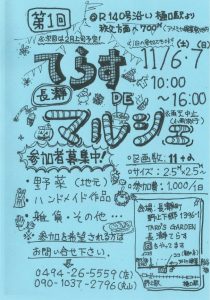 第1回
@R140号沿い 樋口駅より
秩父方面へ700m
11/6・7
(土)(日)
10:00
~16:00
てらす
長瀞
DE
マルシェ
参加者募集中!
・野菜(地元)
・ハンドメイド作品
・雑貨・その他…
参加ご希望される方は
お問い合せ下さい。
0494-26-5559(店)
090-1037-2796(丸山)
○区画数:11
○サイズ:2.5M×2.5M
○参加費:1,000/1日
会場:長瀞町
野上下郷1996-1
TARO'S GARDEN
長瀞てらす